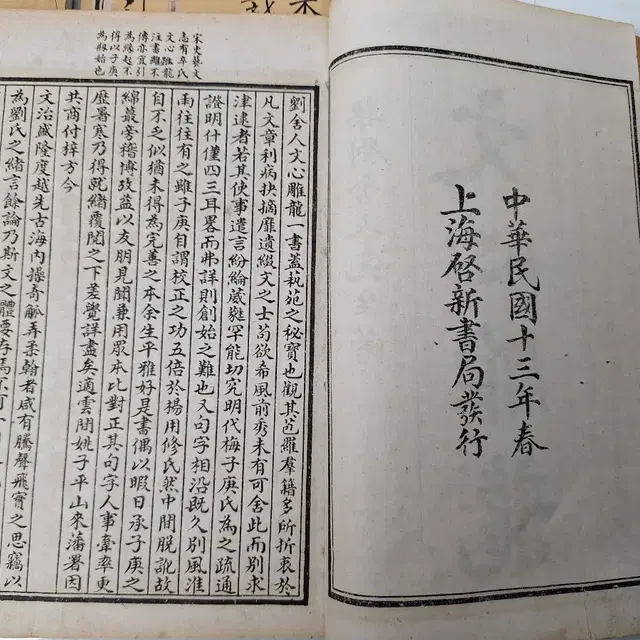 中華民國十三年春
上海啓新書局發行
宋史藝文
志有辛氏
文心雕龍
注書雖不
傳亦宜引
為緣起不
得以子庚
為始也
劉舍人文心雕龍一書蓋藝苑之秘寶也觀其苞羅羣籍多所折衷於
凡文章利病抉摘靡遺綴文之士苟欲希風前秀未有可舍此而別求
津逮者若其使事遣言紛綸葳蕤罕能切究明代梅子庚氏為之疏通
證明什僅四三耳畧而弗詳則創始之難也又句字相沿既久別風淮
南往往有之雖子庚自謂校正之功五倍於楊用修氏然中間脫訛故
自不乏似猶未得為完善之本余生平雅好是書偶以暇日承子庚之
綿蕞旁稽博攷益以友朋見聞兼用眾本比對正其句字人事牽率更
歷暑寒乃得就緒覆閱之下差覺詳盡矣適雲間姚子平山來藩署因
共商付梓方今
文治盛隆度越先古海內操奇觚弄柔翰者咸有騰聲飛實之思竊以
為劉氏之緒言餘論乃斯文之體要存焉不可一